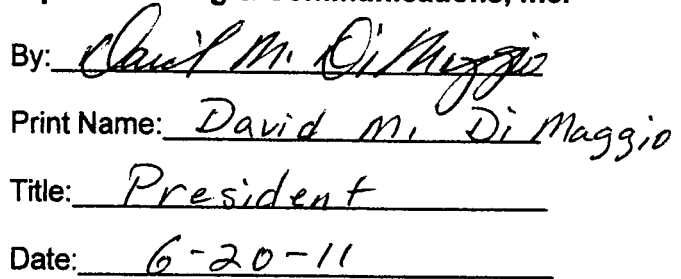 Communications, Inc.
By: David M. DiMaggio
Print Name: David M. Di Maggio
Title: President
Date: 6-20-11